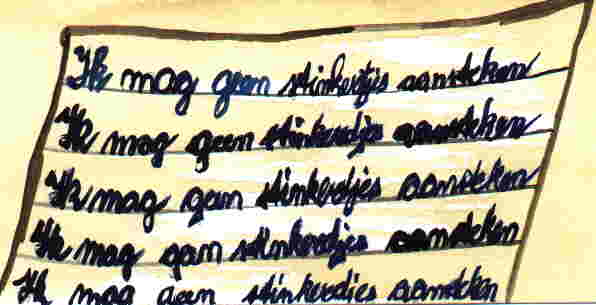 Ik mag geen stinkertjes aansteken
Ik mag geen stinkerdjes aansteken
Ik mag geen stinkerdjes aansteken
Ik mag geen stinkerdjes aansteken
Ik mag geen stinkerdjes aansteken